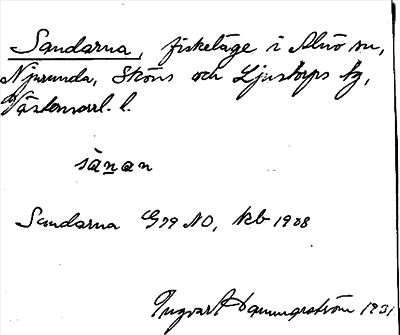 Sandarna, fiskeläge i Alnö sn,
Njurunda, Sköns och Ljustorps tg,
Västernorrl. l.
sànan
Sandarna G79 NO, Kb 1908
Ingvar Hammarström 1931